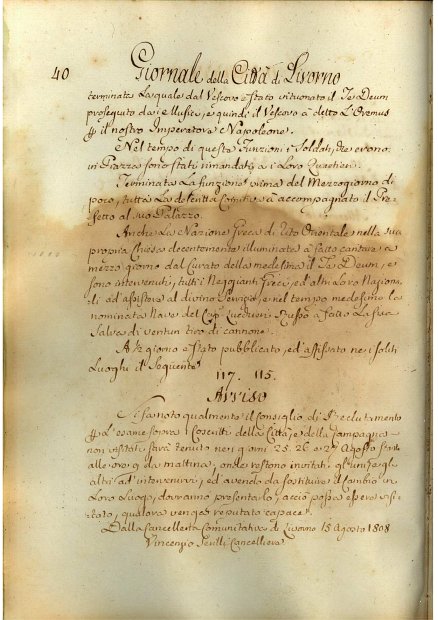 40 Giornale della Città di Livorno
terminata La quale dal Vescovo è stato intuonato il Te Deum
proseguito dai Musici, e quindi il Vescovo à detto L'Oremus
il nostro Imperatore Napoleone.
Nel tempo di questa Funzioni i Soldati, che erono
in Piazza sono stati rimandati a i Loro Quartieri.
Terminata La funzione prima del Mezzogiorno di
poco, tutta La descritta Comitiva à accompagnato il Pre-
fetto al suo Palazzo.
Anche La Nazione Greca di Rito Orientale nella sua
propria Chiesa decentemente illuminata à fatto cantare a
mezzo giorno dal Curato della medesima il Te Deum, e
sono intervenuti, tutti i Negozianti Greci, ed altri Loro Naziona-
li ad assistere al divino Servizio, e nel tempo medesimo la
nominata Nave del à fatto La sua
Salva di ventun tiro di cannone.
giorno è stato pubblicato, ed affissato ne i soliti
Luoghi il Seguente
117. 115.
Avviso
Si fa noto qualmente il Consiglio di Reclutamento
L'esame sopra i Coscritti della Città, e della Campagna
non visitati sarà tenuto nei giorni 25. 26 e 27 Agosto
alle ore 9 da mattina, onde restono invitati gl'uni e gli
altri ad intervenirvi, ed avendo da sostituire il Cambio in
Loro Luogo, dovranno presentarlo, acciò possa essere visi-
tato, qualora venga reputato capace.
Dalla Cancelleria Comunitativa di Livorno 18 Agosto 1808
Vincenzio Cancelliere